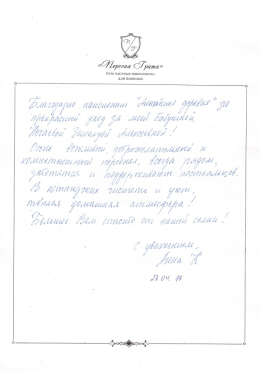 «Персона Грата»
Сеть частных пансионатов
для пожилых
Благодарю пансионат "Линейная деревня" за
прекрасный уход за моей бабушкой
Зинаидой Алексеевной!
Очень вежливый, доброжелательный и
компетентный персонал, всегда рядом,
заботятся и поддерживают постояльцев.
В коттедже чистота и уют,
тёплая домашняя атмосфера!
Большое Вам спасибо от нашей семьи!
С уважением,
Анна К.
27.04